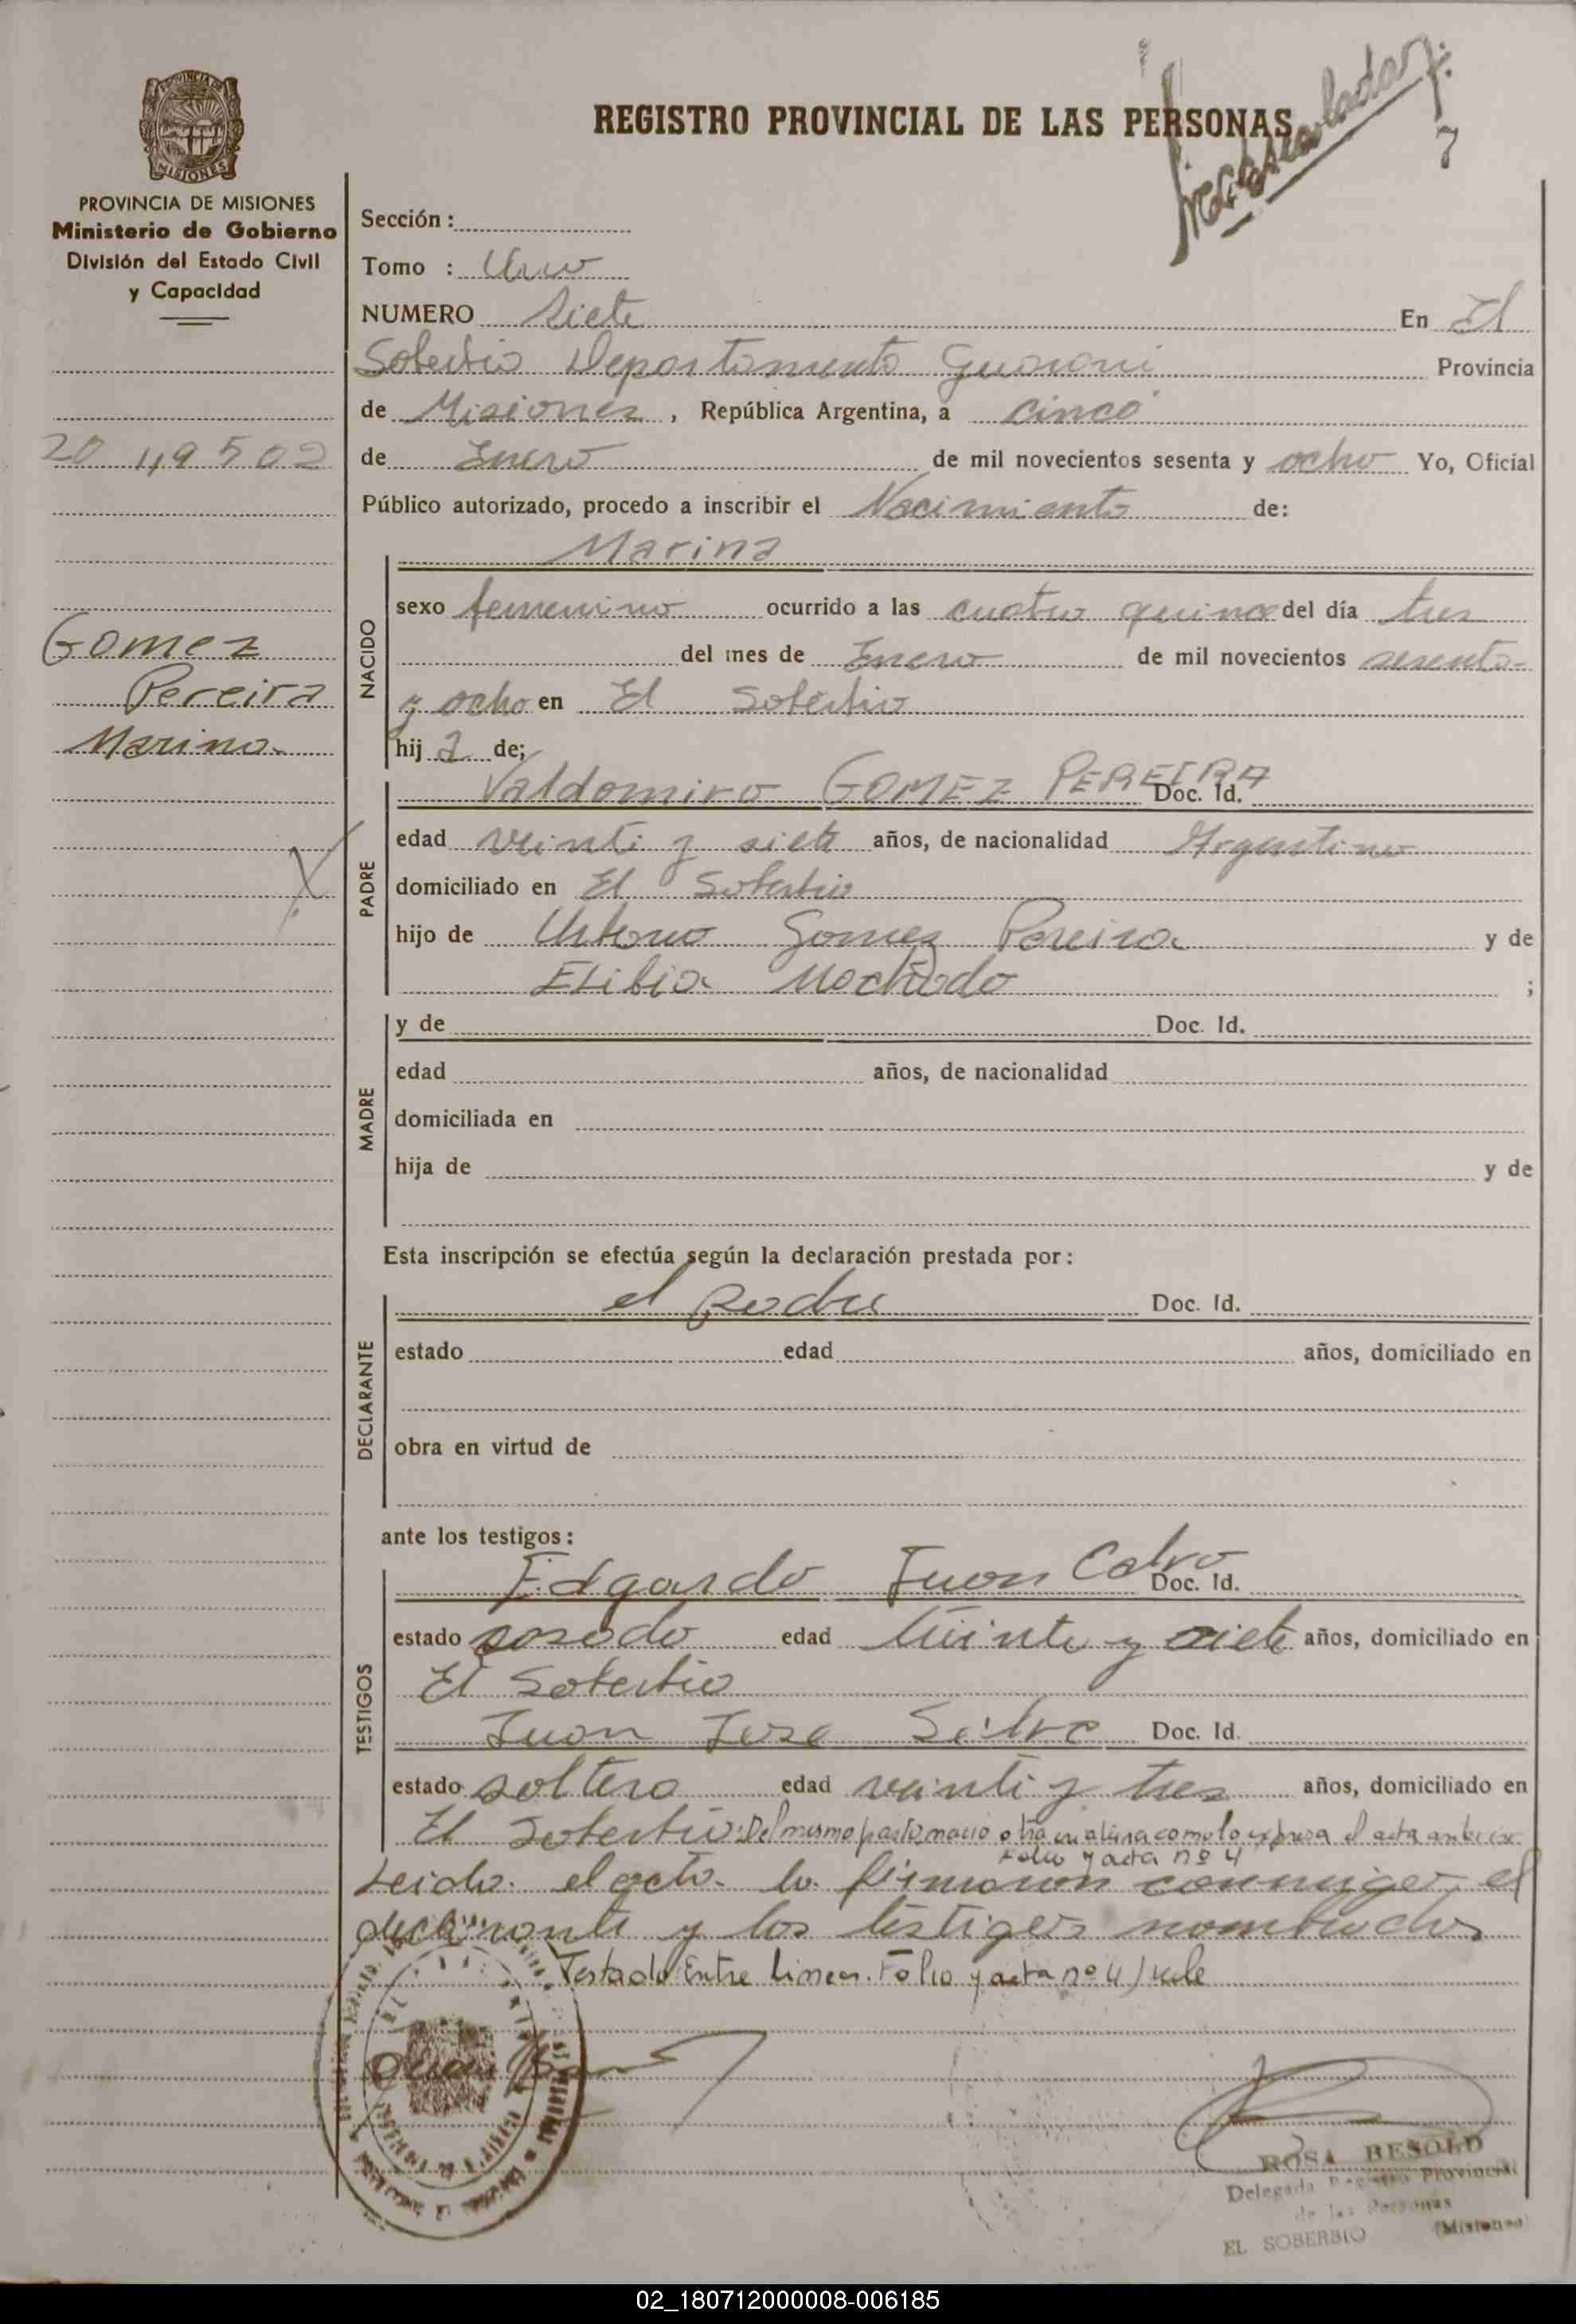 REGISTRO PROVINCIAL DE LAS PERSONAS
7
PROVINCIA DE MISIONES
Ministerio de Gobierno
División del Estado Civil
y Capacidad
Sección:
Tomo : Uno
NUMERO Siete En El
Soberbio Departamento Guarani Provincia
de Misiones, República Argentina, a cinco
20 149 502
de Enero de mil novecientos sesenta y ocho Yo, Oficial
Público autorizado, procedo a inscribir el Nacimiento de:
Marina
Gomez
Pereira
Marina.
NACIDO
sexo femenino ocurrido a las cuatro quince del día tres
del mes de Enero de mil novecientos sesenta
y ocho en El Soberbio
hij a de;
PADRE
Valdomiro GOMEZ PEREIRA Doc. Id.
edad veinti y siete años, de nacionalidad Argentino
domiciliado en El Soberbio
hijo de Gomez Pereira y de
Elibia Machado ;
MADRE
y de Doc. Id.
edad años, de nacionalidad
domiciliada en
hija de y de
Esta inscripción se efectúa según la declaración prestada por:
DECLARANTE
el padre Doc. Id.
estado edad años, domiciliado en
obra en virtud de
ante los testigos:
TESTIGOS
Edgardo Juan Calvo Doc. Id.
estado casado edad veinte y siete años, domiciliado en
El Soberbio
Juan Jose Silva Doc. Id.
estado soltero edad veinti y tres años, domiciliado en
El Soberbio: Del mismo parto nacio otra como lo expresa el acta
Folio y acta nº 4
Leida el acta la firmaron conmigo el
declarante y los testigos nombrados
Testado Entre Lineas. Folio y acta nº 4) vale
ROSA BESOLD
Delegada Registro Provincial
de las Personas
EL SOBERBIO (Misiones)
02_180712000008-006185